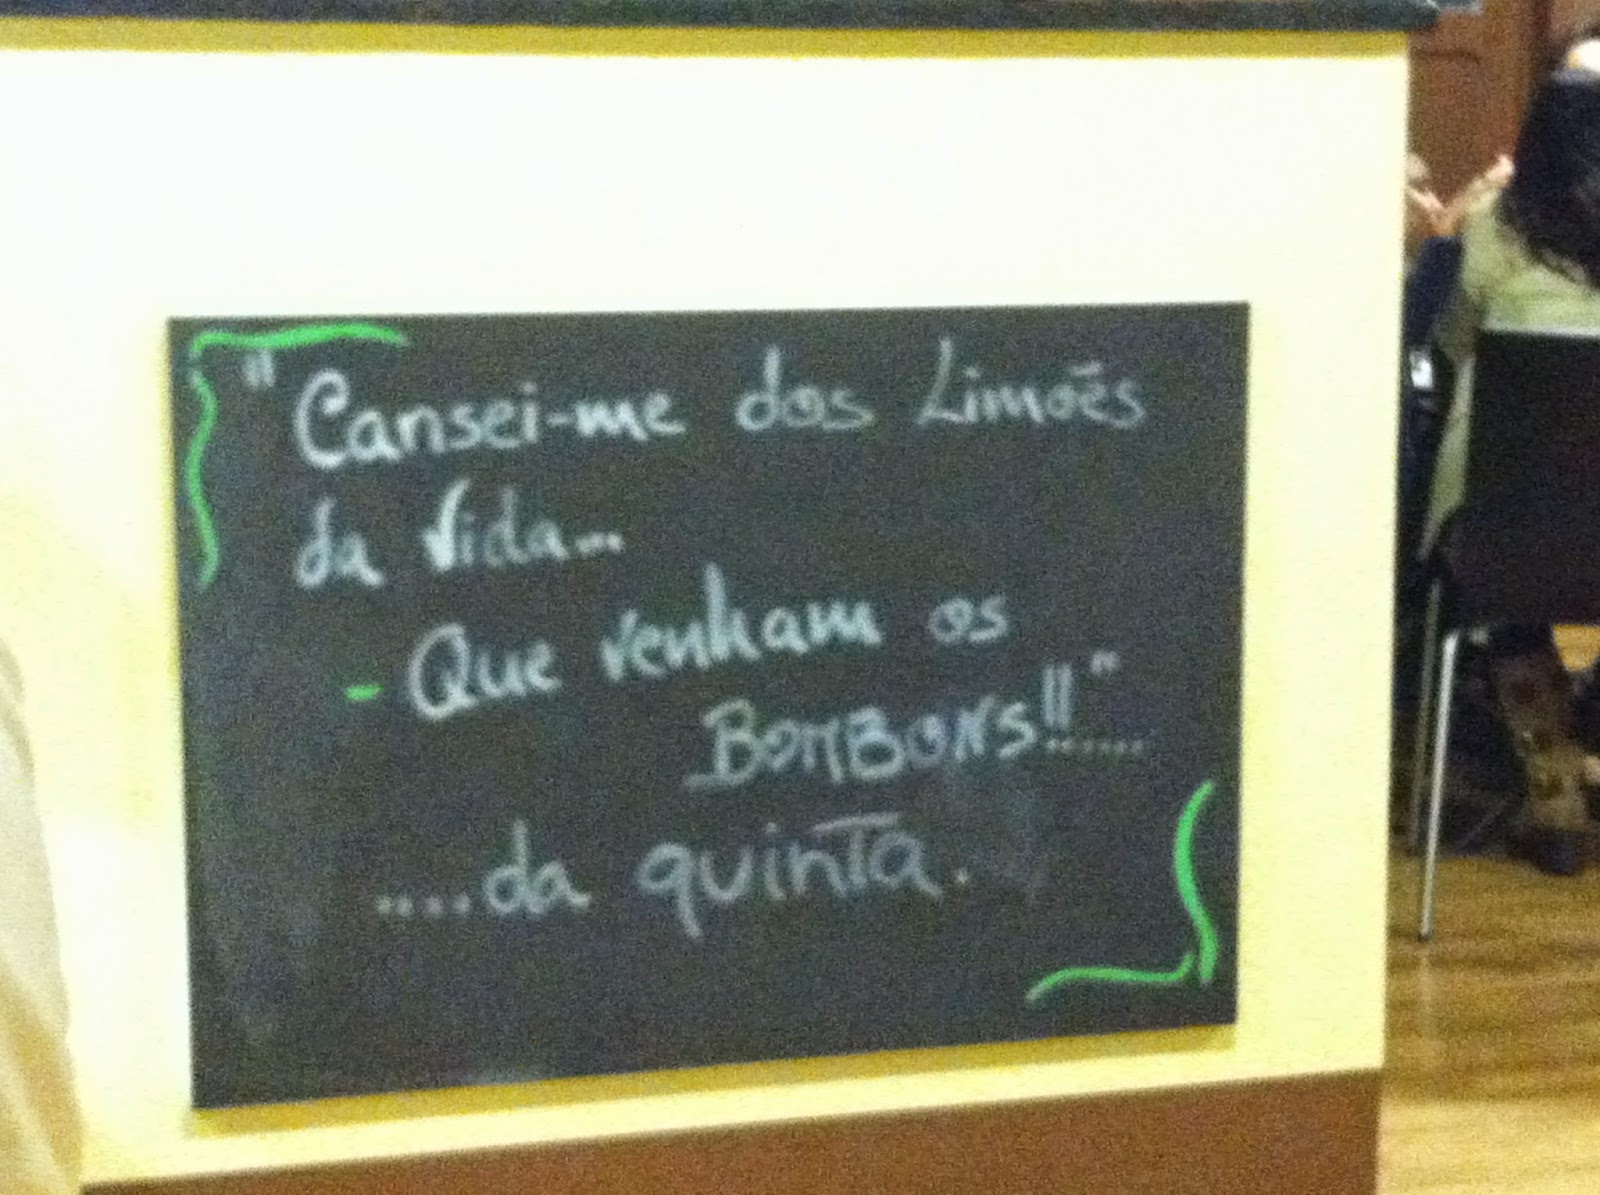 "Cansei-me dos Limões
da Vida...
- Que venham os
BonBons!!"......
.....da quinta.